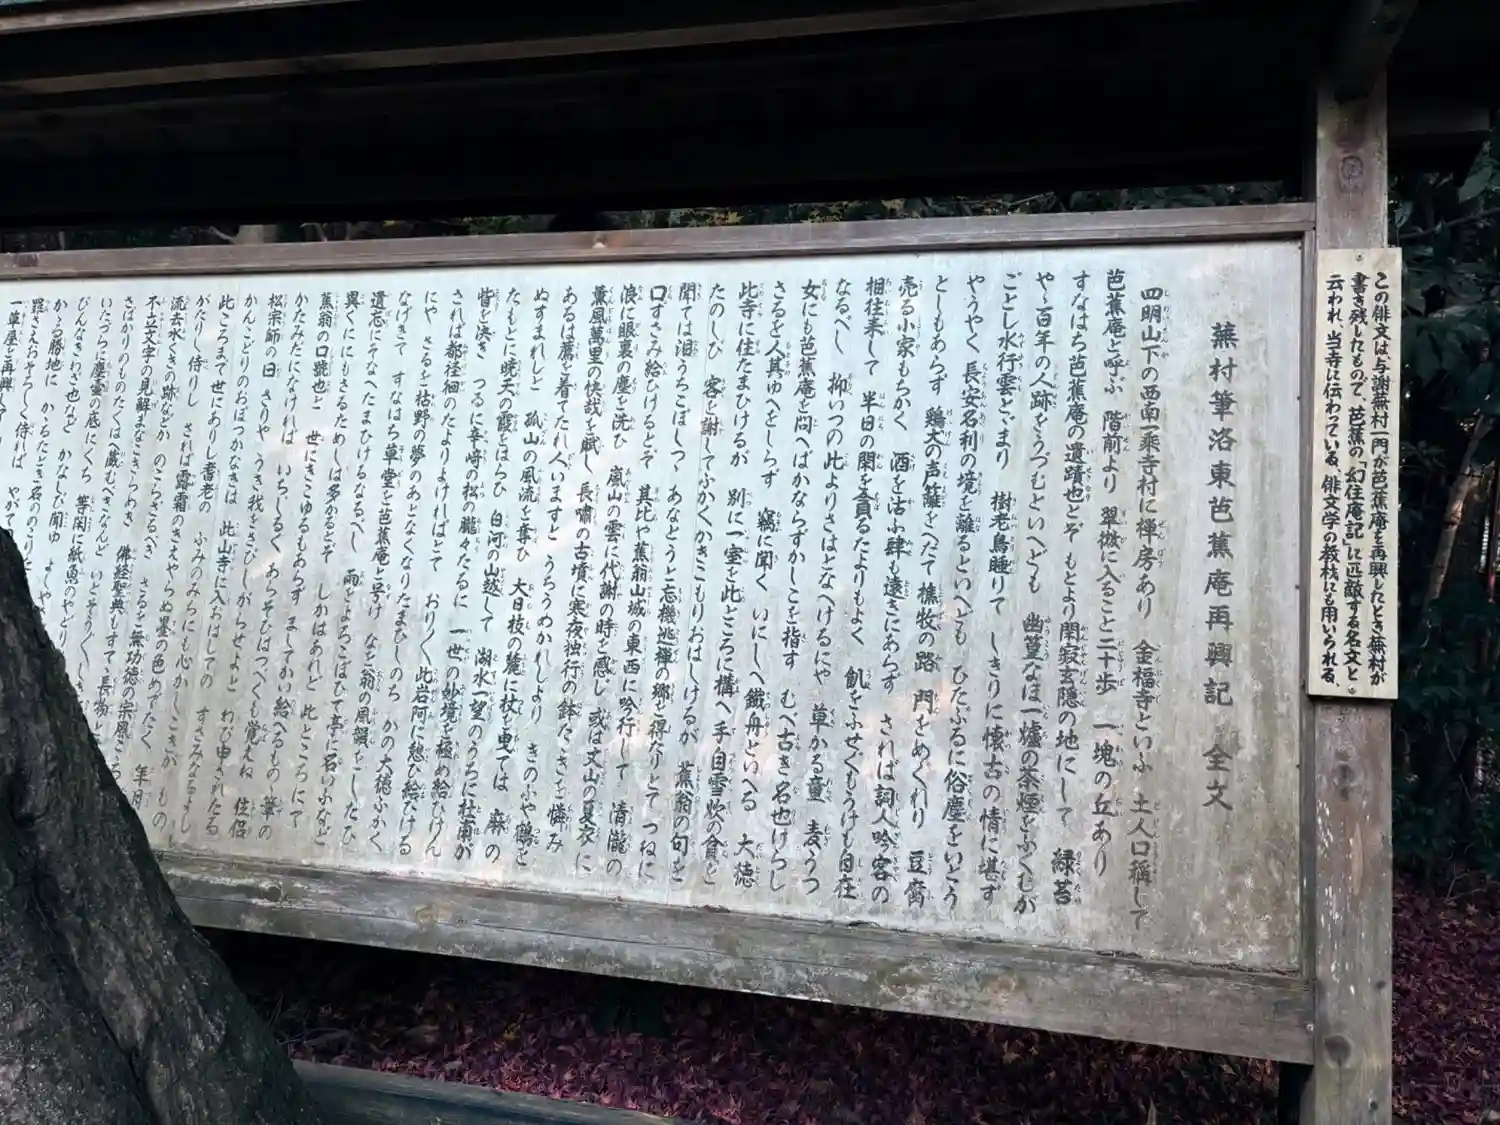 この俳文は与謝蕪村一門が芭蕉庵を再興したとき蕪村が
書き残したもので、芭蕉の「幻住庵記」に匹敵する名文と
云われ、当寺に伝わっている、俳文学の教材にも用いられる、
蕪村筆洛東芭蕉庵再興記 全文
四明山下の西南一乗寺村に禅房あり 金福寺といふ 土人口稱して
芭蕉庵と呼ぶ 階前より 翠微に入ること二十歩 一塊の丘あり
すなはち芭蕉庵の遺蹟也とぞ もとより閑寂玄隠の地にして 緑苔
やゝ百年の人跡をうづむといへども 幽篁なほ一爐の茶煙をふくむが
ごとし水行雲とゞまり 樹老鳥睡りて しきりに懐古の情に堪ず
やうやく長安名利の境を離るといへども ひたぶるに俗塵をいとう
としもあらず 鶏犬の声籬をへだて 樵牧の路 門をめぐれり 豆腐
売る小家もちかく 酒を沽ふ肆も遠きにあらず されば詞人吟客の
相往来して 半日の閑を貪るたよりもよく 飢をふせぐもうけも自在
なるべし 抑いつの比よりさはとなへけるにや 草かる童 麦うつ
女にも芭蕉庵を問へばかならずかしこを指す むべ古き名也けらし
さるを人其ゆへをしらず 竊に聞く いにしへ鐵舟といへる 大徳
此寺に住たまひけるが 別に一室を此ところに構へ 手自雪炊の貧を
たのしび 客を謝してふかくかきこもりおはしけるが 蕉翁の句を
聞ては泪うちこぼしつゝ あなとうと忘機逃禅の郷を得たりとて つねに
口ずさみ給ひけるとぞ 其比や蕉翁山城の東西に吟行して 清瀧の
浪に眼裏の塵を洗ひ 嵐山の雲に代謝の時を感じ 或は丈山の夏衣に
薫風萬里の快哉を賦し 長嘯の古墳に寒夜独行の鉢たゝきを憐み
あるは薦を着てたれ人いますと うちうめかれしより きのふや鶴を
ぬすまれしと 孤山の風流を奪ひ 大日枝の麓に杖を曳ては 麻の
たもとに暁天の霞をはらひ 白河の山越して 湖水一望のうちに杜甫が
眥を決き つゐに辛崎の松の朧々たるに 一世の妙境を極め給ひけん
されば都径徊のたよりよければとて おりおり此岩阿に憩ひ給ひける
にや さるを枯野の夢のあとなくなりたまひしのち かの大徳ふかく
なげきて すなはち草堂を芭蕉庵と号け なを翁の風韻をしたひ
遺忘にそなへたまひけるなるべし 雨をよろこびて亭に名いふなど
異くににもさるためしは多かるとぞ しかはあれど 此ところにて
蕉翁の口號也と 世にきこゆるもあらず ましてかい給へるもの、筆の
かたみだになければ いちじるく あらそひはつべくも覚えね 住侶
松宗師の曰 さりや うき我をさびしがらせよと わび申されたる
かんこどりのおぼつかなきは 此山寺に入おはしての すさみなるよし
此ころまで世にありし耆老の ふみのみちにも心かしこきが もの
がたりし侍りし されば露霜のきえやらぬ墨の色めでたく 年月
流去水くきの跡などか のこらざるべき さるを無功徳の宗風
不立文字の見解まなこきらめき 佛経聖典もすて長物
さばかりのものたくは蔵むべきなんど いとそう/\し
いたづらに塵壺の底にくち 等閑に紙魚のやどり
びんなきわざ也など かなしび聞ゆ よしや
かゝる勝地に かゝるたとき名ののこり
罪さへおそろしく侍れば やがて
一草屋を再興して